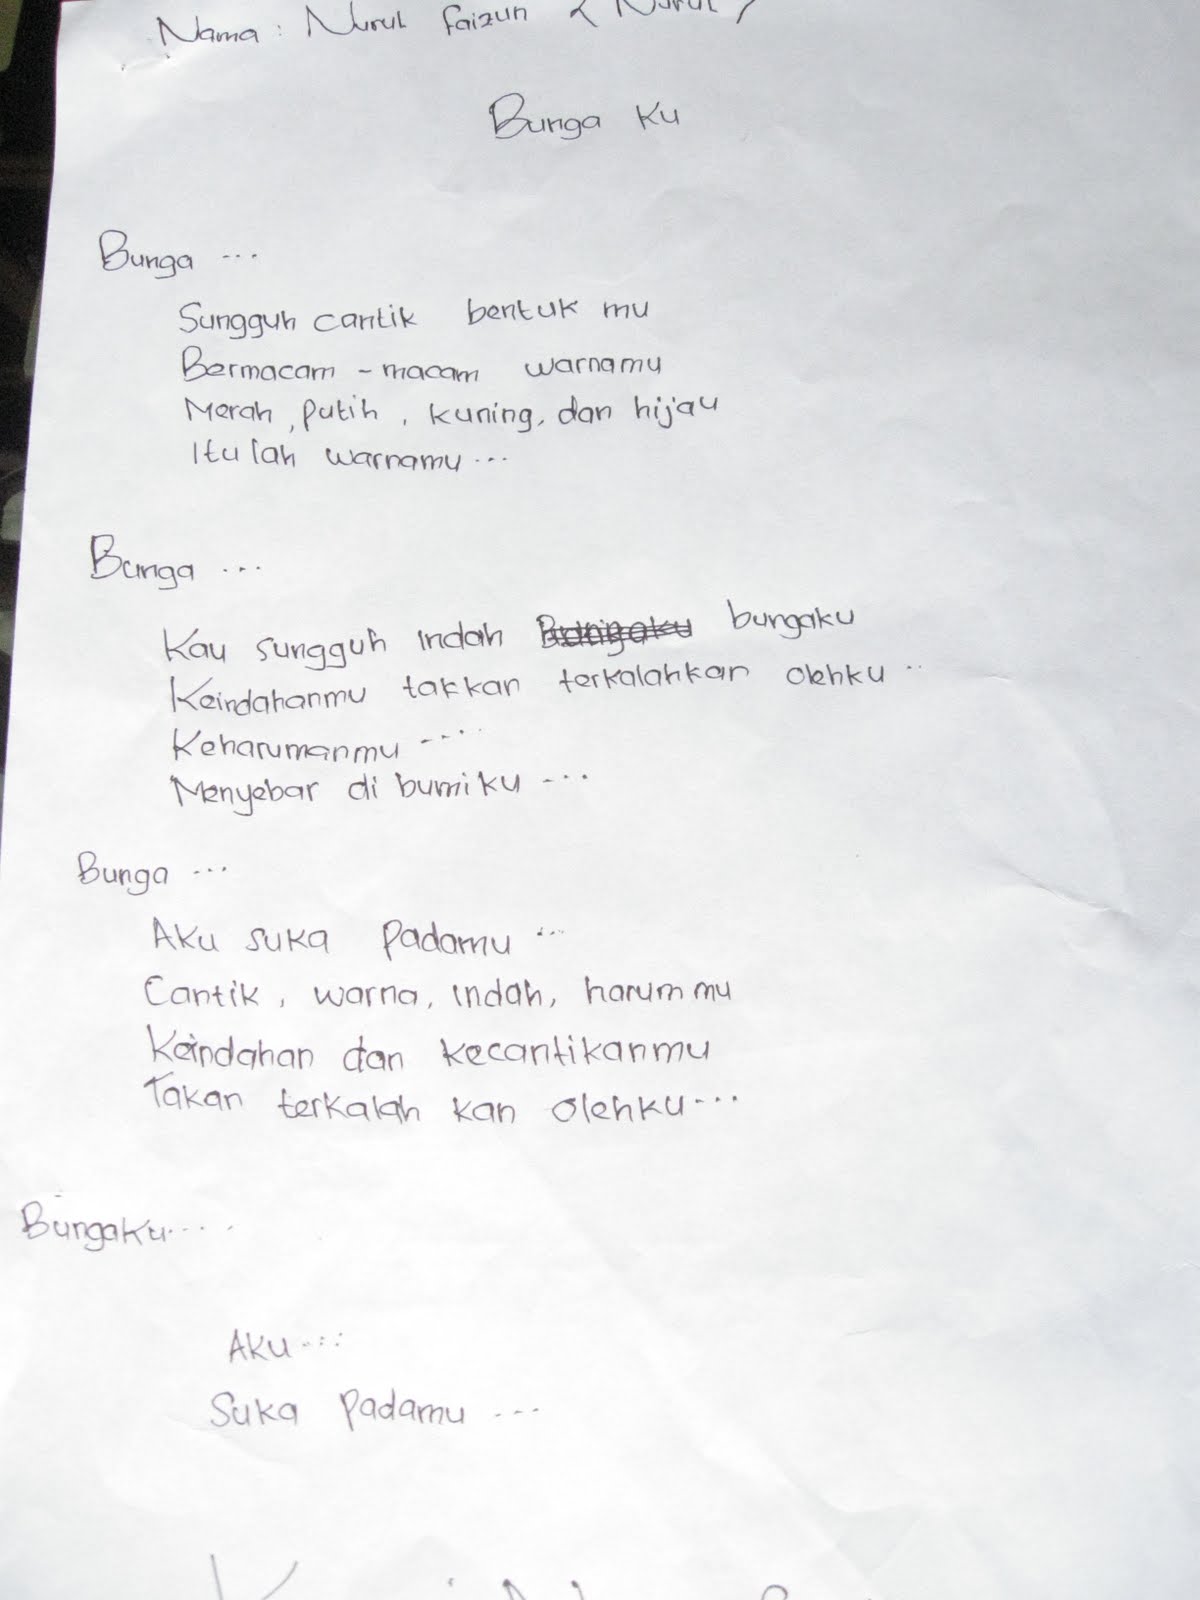 Nama : Nurul faizun ( Nurul )
Bunga Ku
Bunga ...
Sungguh cantik bentuk mu
Bermacam - macam warnamu
Merah , putih , kuning, dan hijau
Itu lah warnamu ...
Bunga ...
Kau sungguh indah bungaku
Keindahanmu takkan terkalahkan olehku ..
Keharumanmu ....
Menyebar di bumi ku ...
Bunga ...
Aku suka padamu ...
Cantik , warna, indah, harum mu
Keindahan dan kecantikanmu
Takan terkalah kan olehku ...
Bungaku ....
Aku ...
Suka padamu ...